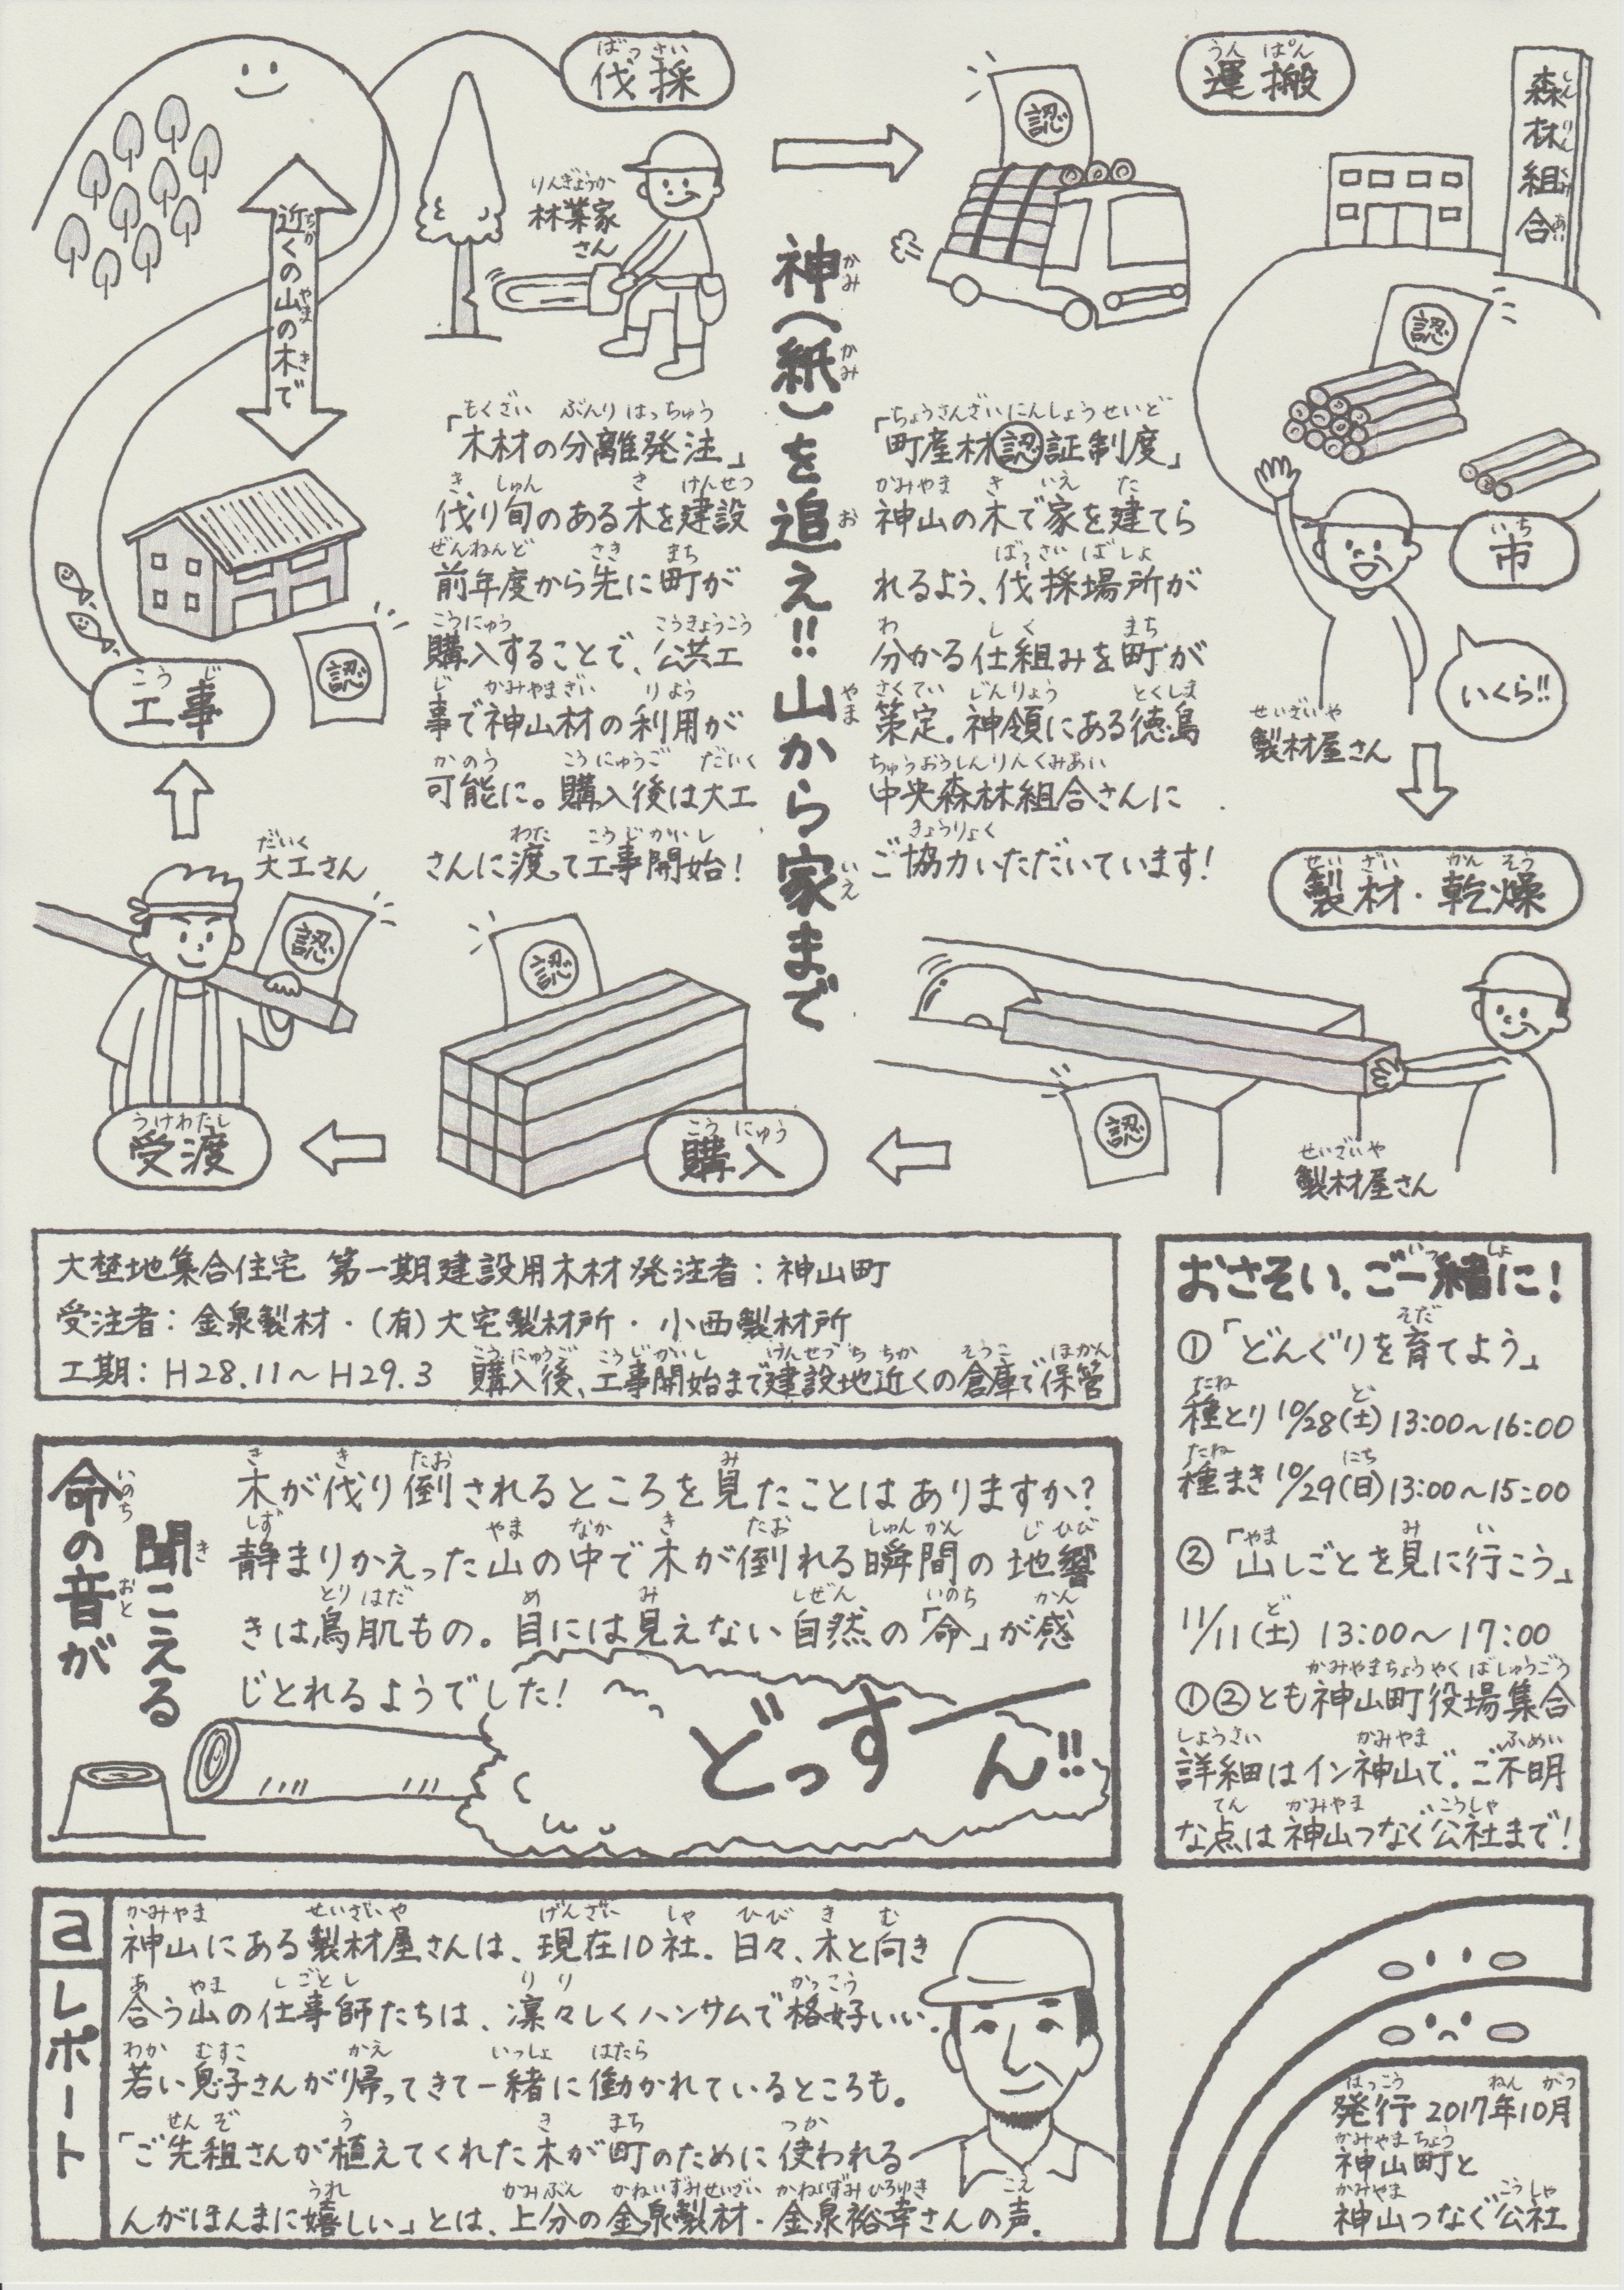 伐採
林業家さん
近くの山の木で
運搬
認
森林組合
認
市
いくら!!
製材屋さん
製材・乾燥
製材屋さん
認
購入
認
受渡
大工さん
認
工事
認
神(紙)を追え!!山から家まで
「町産材認証制度」
神山の木で家を建てら
れるよう、伐採場所が
分かる仕組みを町が
策定。神領にある徳島
中央森林組合さんに
ご協力いただいています!
「木材の分離発注」
伐り旬のある木を建設
前年度から先に町が
購入することで、公共工
事で神山材の利用が
可能に。購入後は大工
さんに渡って工事開始!
大埜地集合住宅 第一期建設用木材発注者:神山町
受注者:金泉製材・(有)大宅製材所・小西製材所
工期:H28.11〜H29.3 購入後、工事開始まで建設地近くの倉庫で保管
おさそい、ご一緒に!
①「どんぐりを育てよう」
種とり10/28(土)13:00〜16:00
種まき10/29(日)13:00〜15:00
②「山しごとを見に行こう」
11/11(土) 13:00〜17:00
①②とも神山町役場集合
詳細はイン神山で。ご不明
な点は神山つなぐ公社まで!
命の音が
聞こえる
木が伐り倒されるところを見たことはありますか?
静まりかえった山の中で木が倒れる瞬間の地響
きは鳥肌もの。目には見えない自然の「命」が感
じとれるようでした!
どっすーん!!
aレポート
神山にある製材屋さんは、現在10社。日々、木と向き
合う山の仕事師たちは、凛々しくハンサムで格好いい。
若い息子さんが帰ってきて一緒に働かれているところも。
「ご先祖さんが植えてくれた木が町のために使われる
んがほんまに嬉しい」とは、上分の金泉製材・金泉裕幸さんの声。
発行 2017年10月
神山町と
神山つなぐ公社